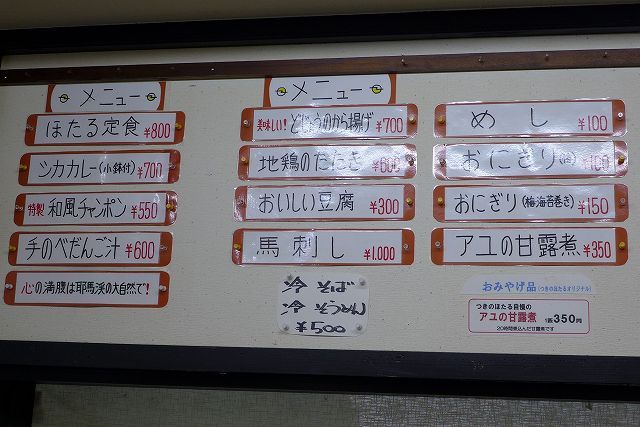 メニュー
ほたる定食 ¥800
シカカレー(小鉢付) ¥700
特製 和風チャンポン ¥550
手のべだんご汁 ¥600
心の満腹は耶馬渓の大自然で!
メニュー
美味しい! どじょうのから揚げ ¥700
地鶏のたたき ¥600
おいしい豆腐 ¥300
馬刺し ¥1,000
冷そば
冷そうめん
¥500
めし ¥100
おにぎり ¥100
おにぎり(梅海苔巻き) ¥150
アユの甘露煮 ¥350
おみやげ品(つきのほたるオリジナル)
つきのほたる自慢の
アユの甘露煮 1匹350円
20時間煮込んだ甘露煮です